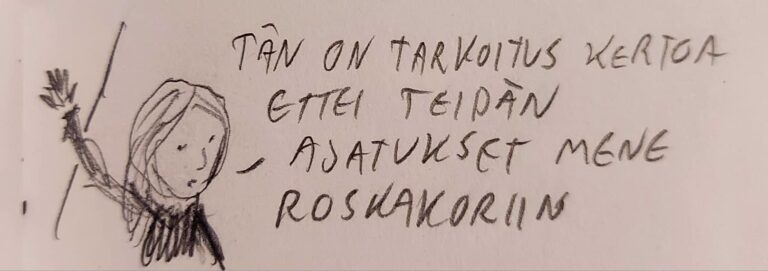 TÄN ON TARKOITUS KERTOA
ETTEI TEIDÄN
AJATUKSET MENE
ROSKAKORIIN